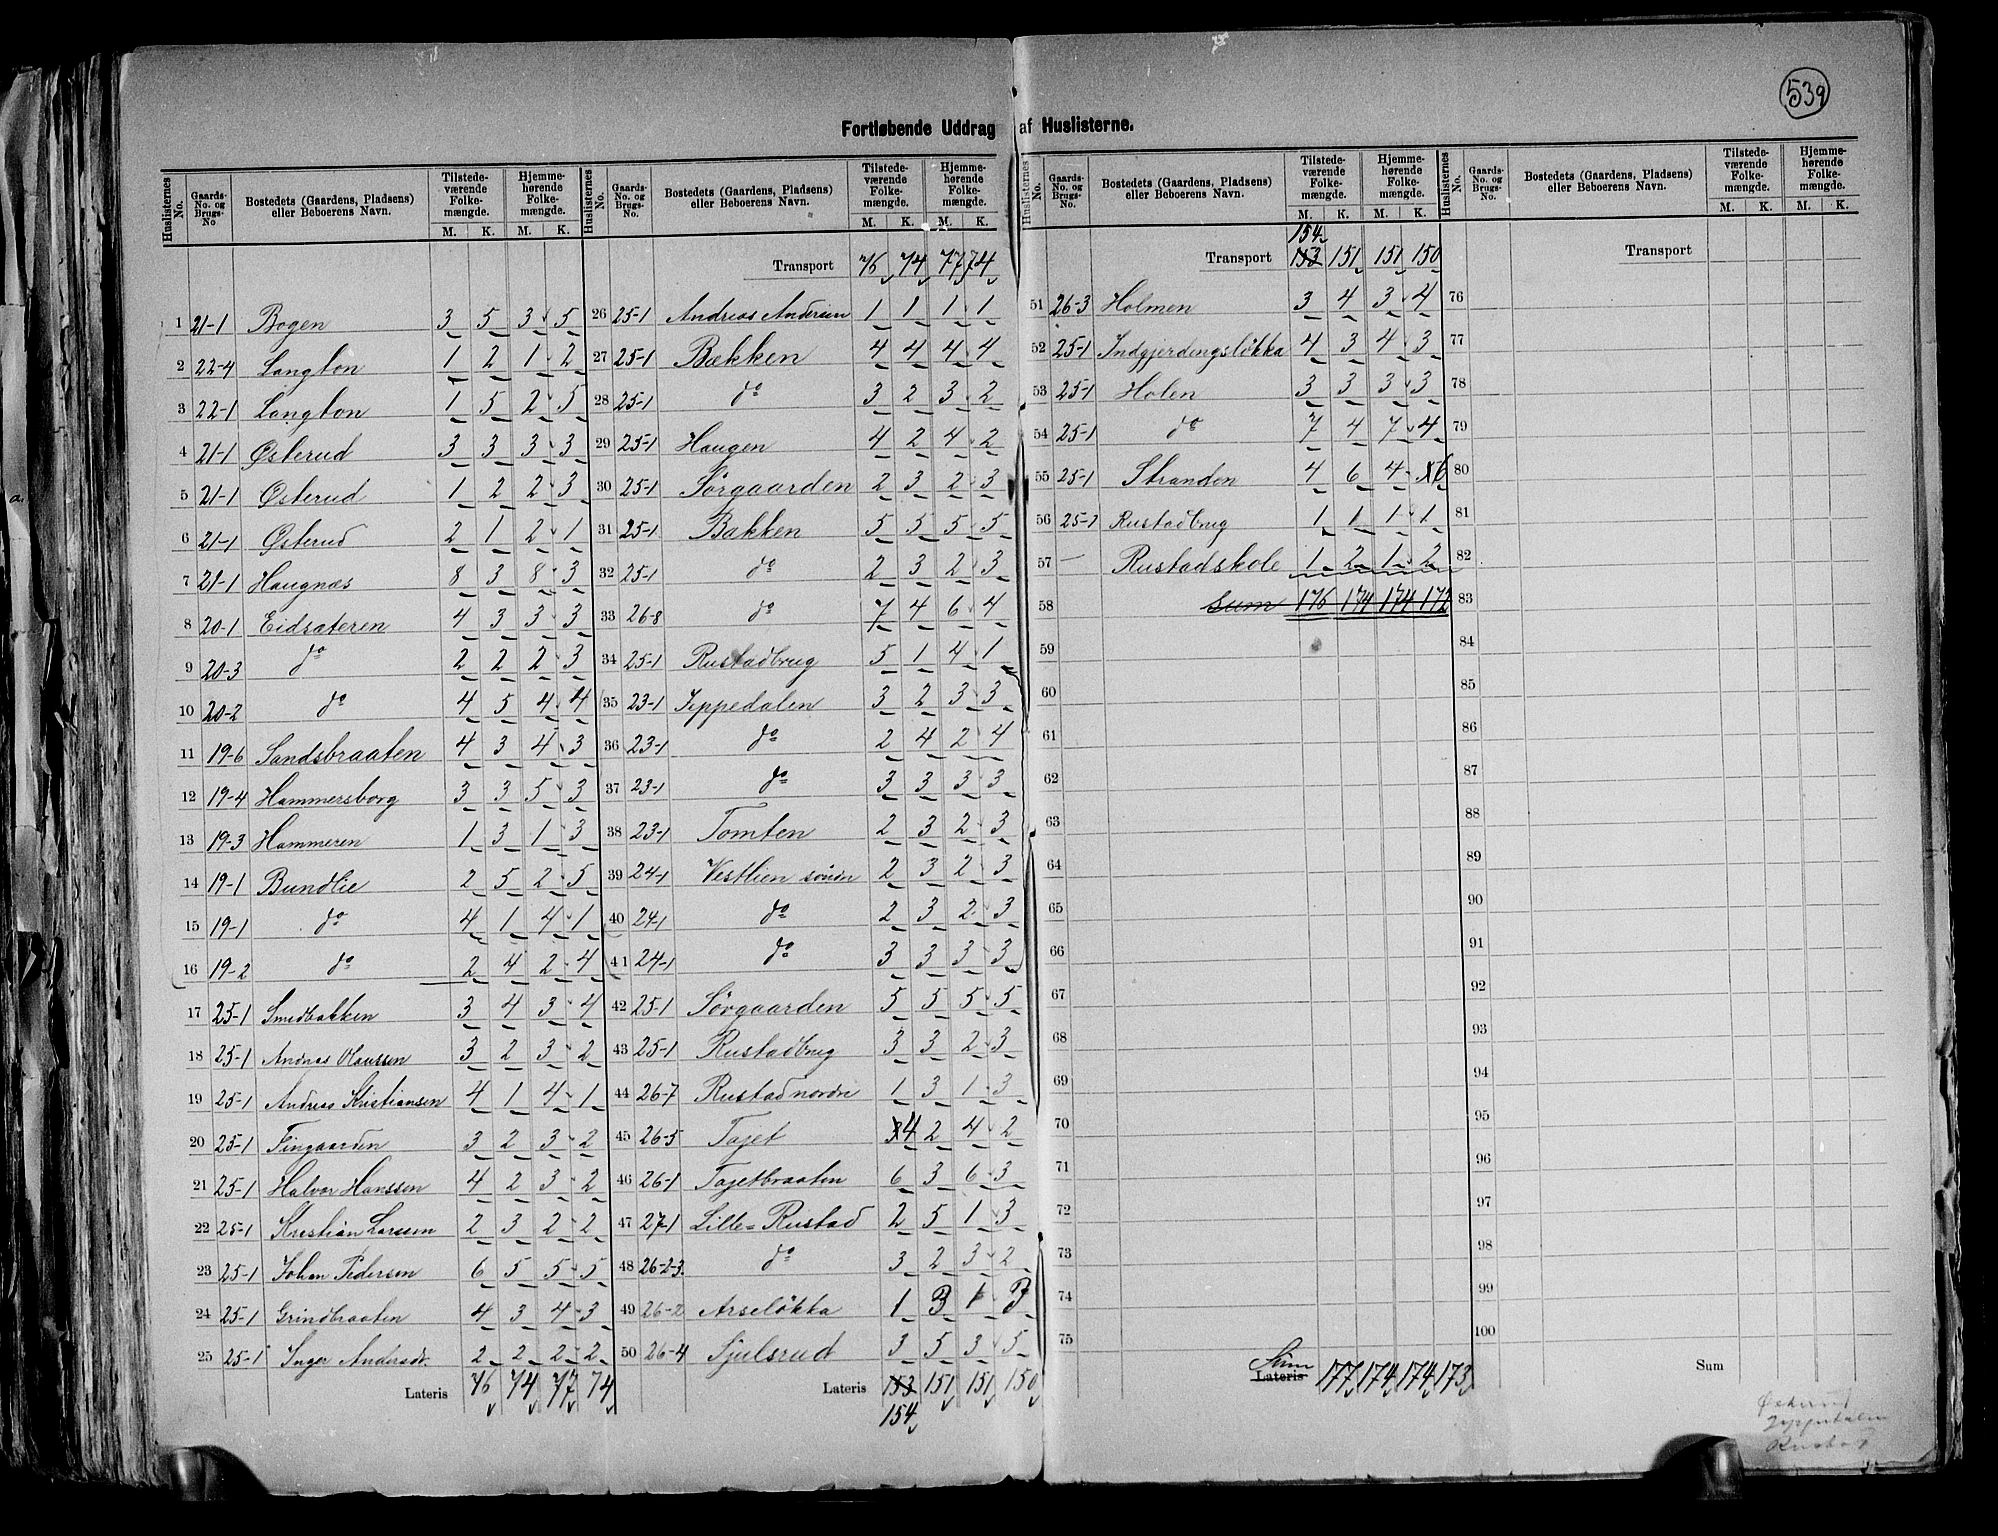 539
Fortløbende Uddrag af Huslisterne.
Huslisternes No. Gaards-No. og Brugs-No Bostedets (Gaardens, Pladsens) eller Beboerens Navn. Tilstedeværende Folkemængde. M. K. Hjemmehørende Folkemængde. M. K.
1 21-1 Bogen 3 5 3 5
2 22-4 Langton 1 2 1 2
3 22-1 Langton 1 5 2 5
4 21-1 Østerud 3 3 3 3
5 21-1 Østerud 1 2 2 3
6 21-1 Østerud 2 1 2 1
7 21-1 Haugnæs 8 3 8 3
8 20-1 Eidsateren 4 3 3 3
9 20-3 do 2 2 2 3
10 20-2 do 4 5 4 4
11 19-6 Sandsbraaten 4 3 4 3
12 19-4 Hammersborg 3 3 5 3
13 19-3 Hammeren 1 3 1 3
14 19-1 Bundlie 2 5 2 5
15 19-1 do 4 1 4 1
16 19-2 do 2 4 2 4
17 25-1 Smedbakken 3 4 3 4
18 25-1 Andreas Olaussen 3 2 3 2
19 25-1 Andreas Kristiansen 4 1 4 1
20 25-1 Fingaarden 3 2 3 2
21 25-1 Halvor Hanssen 4 2 3 2
22 25-1 Kristian Larsen 2 3 2 2
23 25-1 Johan Pedersen 6 5 5 5
24 25-1 Grindbraaten 4 3 4 3
25 25-1 Inger Andersdt. 2 2 2 2
Lateris 76 74 77 74
Huslisternes No. Gaards-No. og Brugs-No. Bostedets (Gaardens, Pladsens) eller Beboerens Navn. Tilstedeværende Folkemængde. M. K. Hjemmehørende Folkemængde. M. K.
Transport 76 74 77 74
26 25-1 Andreas Andersen 1 1 1 1
27 25-1 Bækken 4 4 4 4
28 25-1 do 3 2 3 2
29 25-1 Haugen 4 2 4 2
30 25-1 Sørgaarden 2 3 2 3
31 25-1 Bakken 5 5 5 5
32 25-1 do 2 3 2 3
33 26-8 do 7 4 6 4
34 25-1 Rustadbrug 5 1 4 1
35 23-1 Jeppedalen 3 2 3 3
36 23-1 do 2 4 2 4
37 23-1 do 3 3 3 3
38 23-1 Tomten 2 3 2 3
39 24-1 Vestlien søndn 2 3 2 3
40 24-1 do 2 3 2 3
41 24-1 do 3 3 3 3
42 25-1 Sørgaarden 5 5 5 5
43 25-1 Rustadbrug 3 3 2 3
44 26-7 Rustad nordn 1 3 1 3
45 26-5 Tajet 4 2 4 2
46 26-1 Tajetbraaten 6 3 6 3
47 27-1 Lille-Rustad 2 5 1 3
48 26-2-3 do 3 2 3 2
49 26-2 Arseløkka 1 3 1 3
50 26-4 Sjulsrud 3 5 3 5
Lateris 153 151 151 150
154
Huslisternes No. Gaards-No. og Brugs-No. Bostedets (Gaardens, Pladsens) eller Beboerens Navn. Tilstedeværende Folkemængde. M. K. Hjemmehørende Folkemængde. M. K.
154
Transport 153 151 151 150
51 26-3 Holmen 3 4 3 4
52 25-1 Indgjerdingsløkka 4 3 4 3
53 25-1 Holen 3 3 3 3
54 25-1 do 7 4 7 4
55 25-1 Stranden 4 6 4 6
56 25-1 Rustadbrug 1 1 1 1
57 — Rustadskole 1 2 1 2
58 Sum 176 174 174 172
59
60
61
62
63
64
65
66
67
68
69
70
71
72
73
74
75
Sum
Lateris 177 174 174 173
Huslisternes No. Gaards-No. og Brugs-No. Bostedets (Gaardens, Pladsens) eller Beboerens Navn. Tilstedeværende Folkemængde. M. K. Hjemmehørende Folkemængde. M. K.
Transport
76
77
78
79
80
81
82
83
84
85
86
87
88
89
90
91
92
93
94
95
96
97
98
99
100
Sum
Østerud
Jeppedalen
Rustad